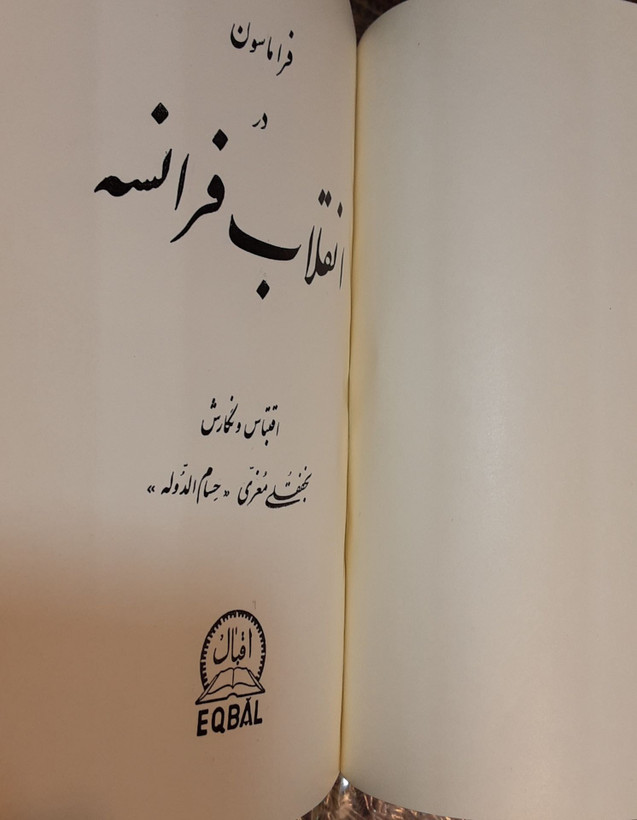 فراماسون
در
انقلاب فرانسه
اقتباس و نگارش
نجفقلی مُعزّی «حسام الدّوله»
اقبال
EQBĀL